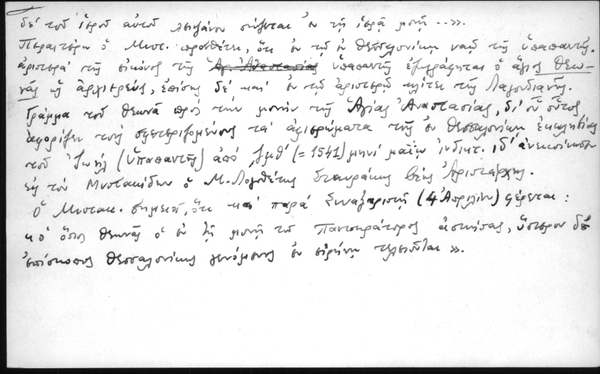 δὲ τοῦ ἱεροῦ αὐτοῦ λειψάνου σώζεται ἐν τῇ ἱερᾷ μονῇ...».
Περαιτέρω ὁ Μυστ. προσθέτει, ὅτι ἐν τῷ ἐν Θεσσαλονίκῃ ναῷ τῆς Ὑπαπαντῆς
ἀριστερὰ τῆς εἰκόνος τῆς Ἁγ. Ἀναστασίας Ὑπαπαντῆς ἐμφαίνεται ὁ ἅγιος Θεω-
νᾶς ὡς ἀρχιερεύς, ἐπίσης δὲ καὶ ἐν τῷ ἀριστερῷ κλίτει τῆς Λαγουδιανῆς.
Γράμμα τοῦ Θεωνᾶ πρὸς τὴν μονὴν τῆς Ἁγίας Ἀναστασίας, δι' οὗ οὗτος
ἀφορίζει τοὺς σφετεριζομένους τὰ ἀφιερώματα τῆς ἐν Θεσσαλονίκῃ ἐκκλησίας
τοῦ (Ὑπαπαντῆς) ἀπὸ ͵ζμθ' (= 1541) μηνὶ μαΐῳ ἰνδικτ. ιδ' ἀνεκοίνωσεν
εἰς τὸν Μυστακίδην ὁ Μ. Λογοθέτης Σταυράκης βέης Ἀριστάρχης.
Ὁ Μυστακ. σημειοῖ, ὅτι καὶ παρὰ Συναξαριστῇ (4 Ἀπριλίου) φέρεται:
«ὁ ὅσιος Θεωνᾶς ὁ ἐν τῇ μονῇ τοῦ Παντοκράτορος ἀσκήσας, ὕστερον δὲ
ἐπίσκοπος Θεσσαλονίκης γενόμενος ἐν εἰρήνῃ τελειοῦται».